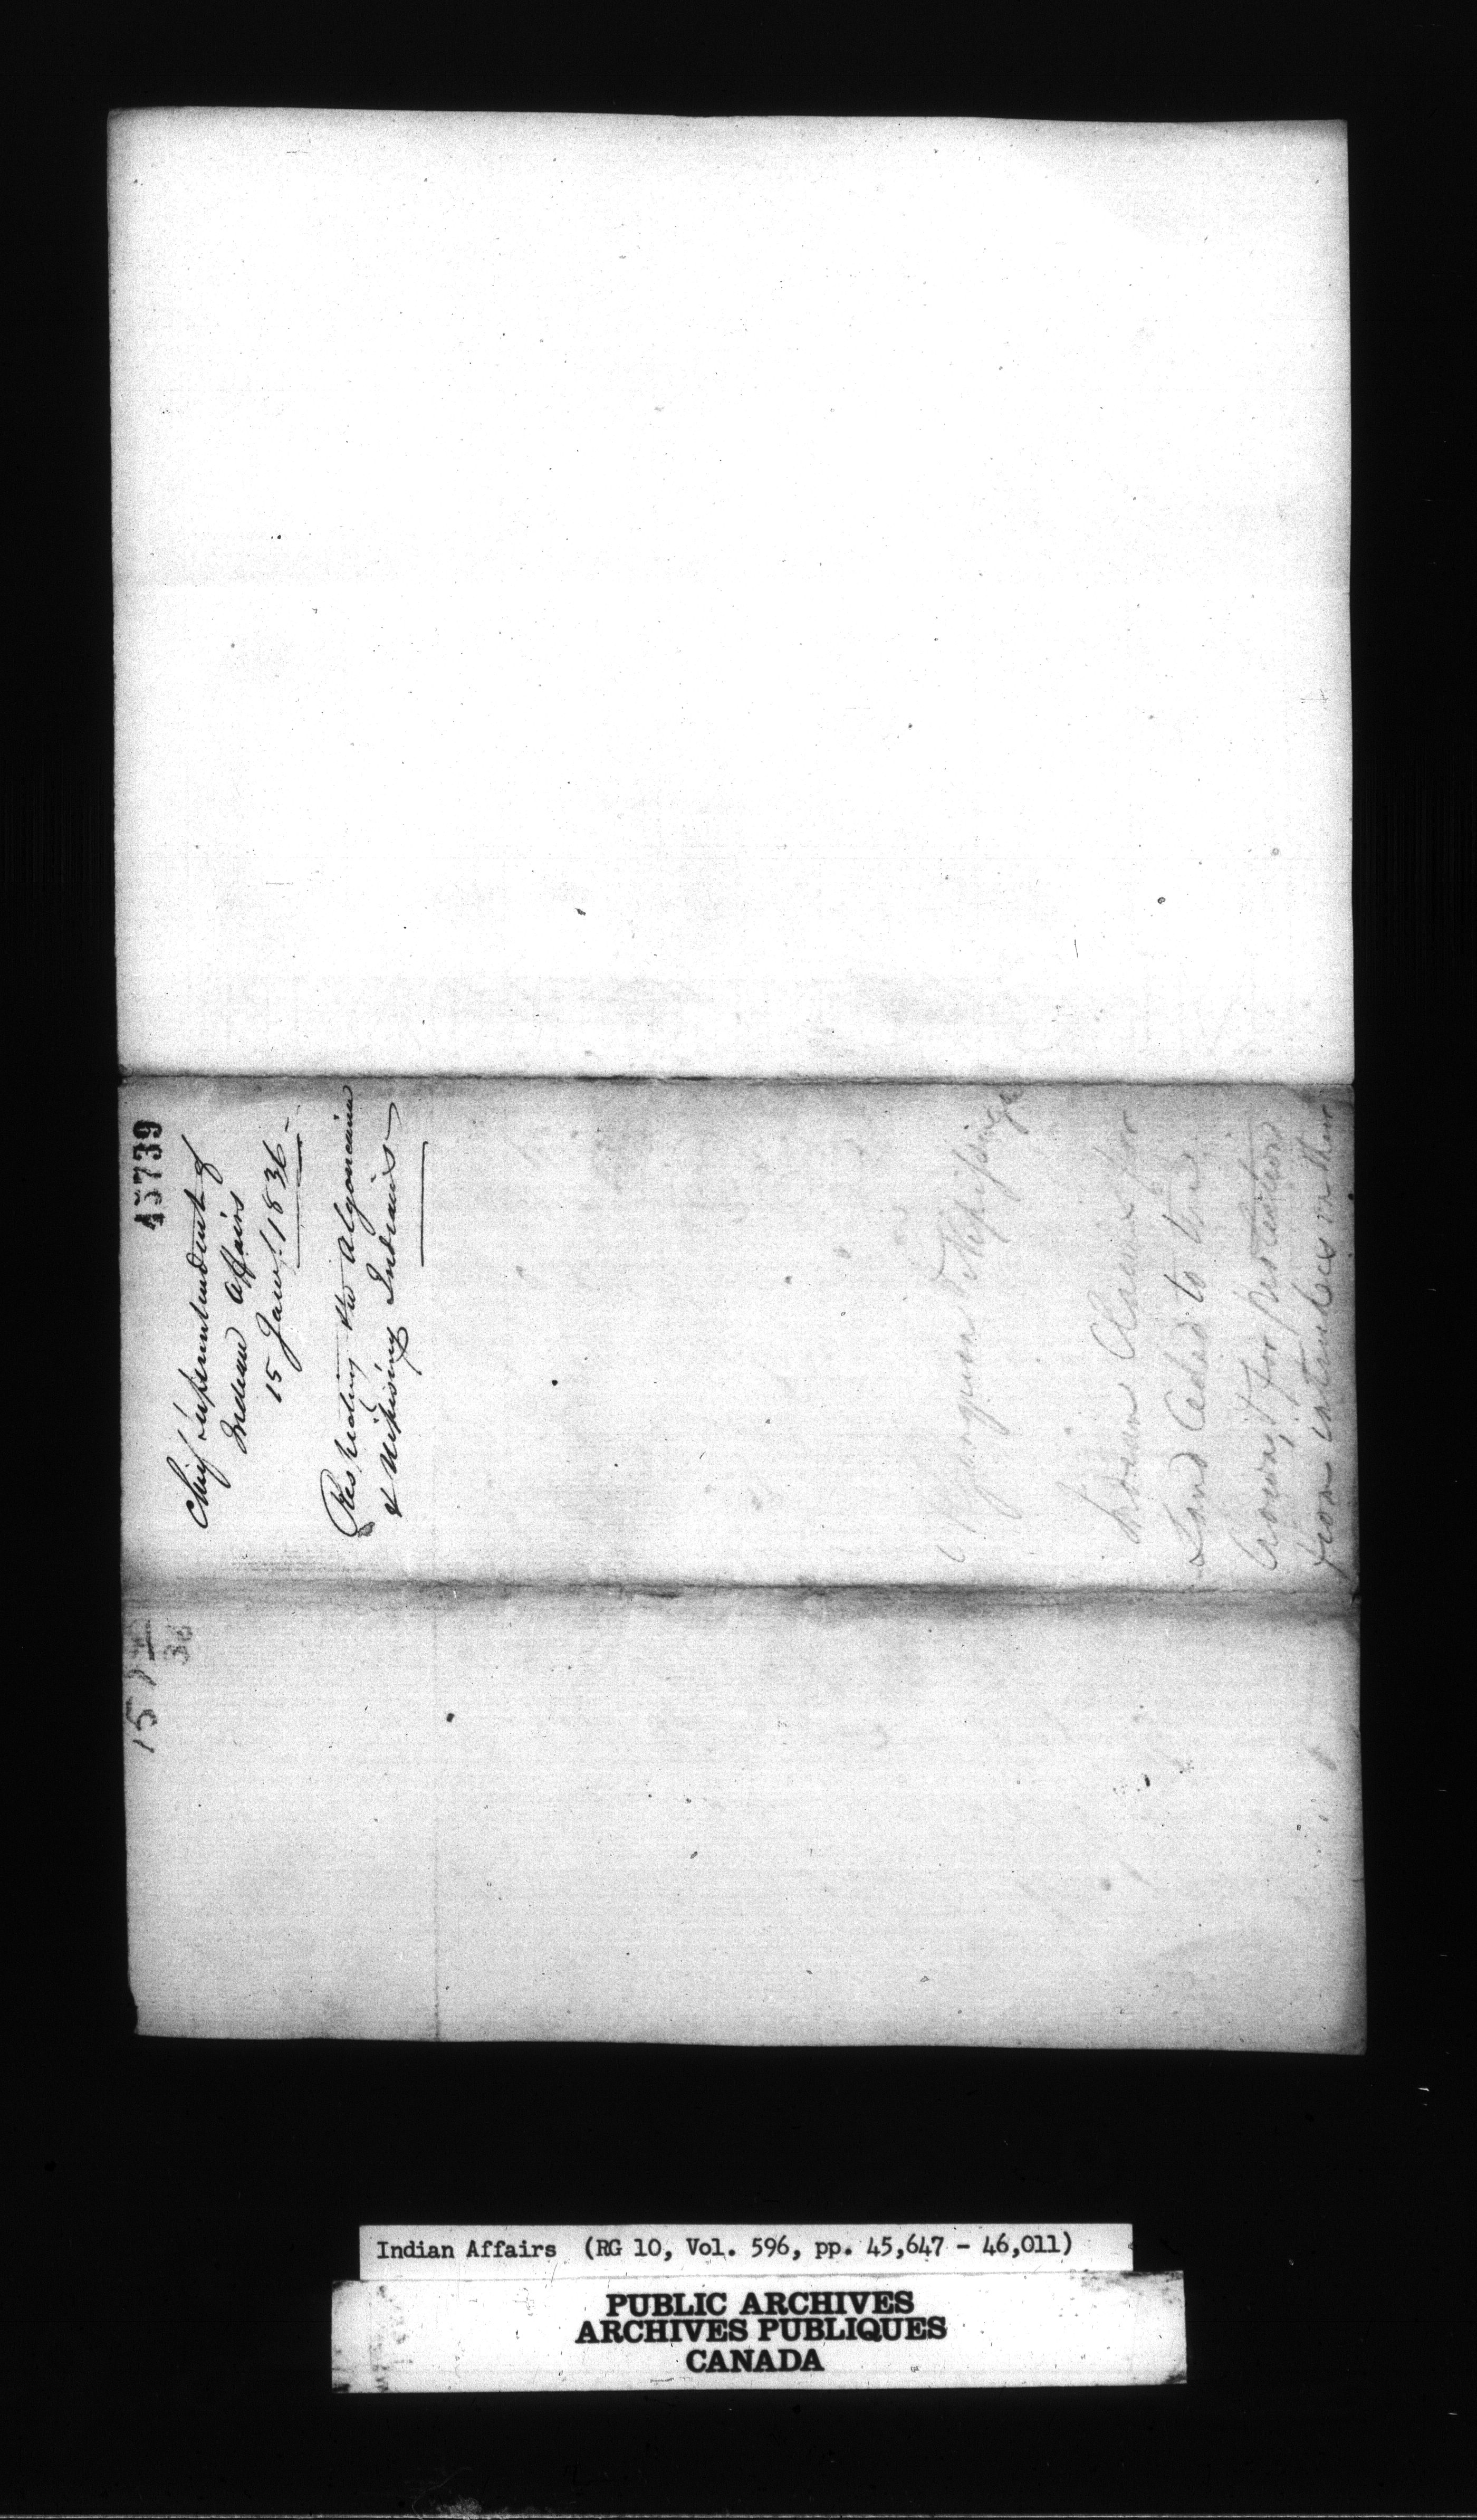 45739
Chief Superintendent of
Indian Affairs
15 Jany. 1836 -
Respecting the Algonquin
& Nipising Indians
Algonquin & Nipissingue
Indian Claims for
Land Ceded to the
Crown, & for protection
from intruders on their
15 1
36
Indian Affairs (RG 10, Vol. 596, pp. 45,647 - 46,011)
PUBLIC ARCHIVES
ARCHIVES PUBLIQUES
CANADA